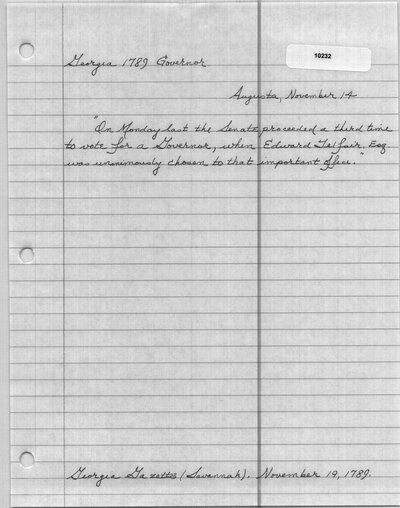 Georgia 1789 Governor
10232
Augusta, November 14
"On Monday last the Senate proceeded a third time
to vote for a Governor, when Edward Telfair, Esq.
was unanimously chosen to that important office."
Georgia Gazette (Savannah). November 19, 1789.